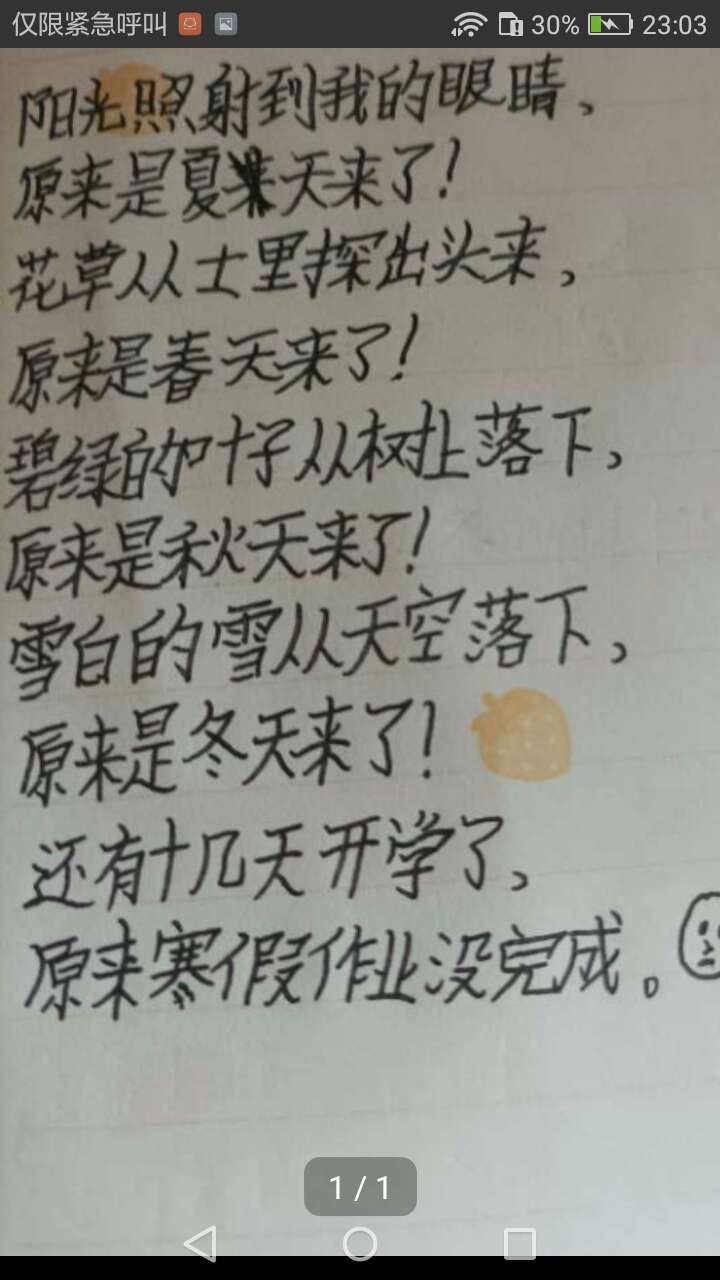 仅限紧急呼叫 30% 23:03
阳光照射到我的眼睛、
原来是夏天来了!
花草从土里探出头来,
原来是春天来了!
碧绿的叶子从树上落下,
原来是秋天来了!
雪白的雪从天空落下,
原来是冬天来了!
还有十几天开学了、
原来寒假作业没完成。
1 / 1